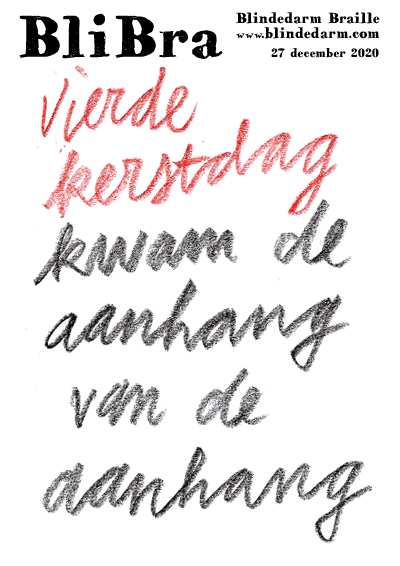 BliBra
Blindedarm Braille
www.blindedarm.com
27 december 2020
vierde
kerstdag
kwam de
aanhang
van de
aanhang